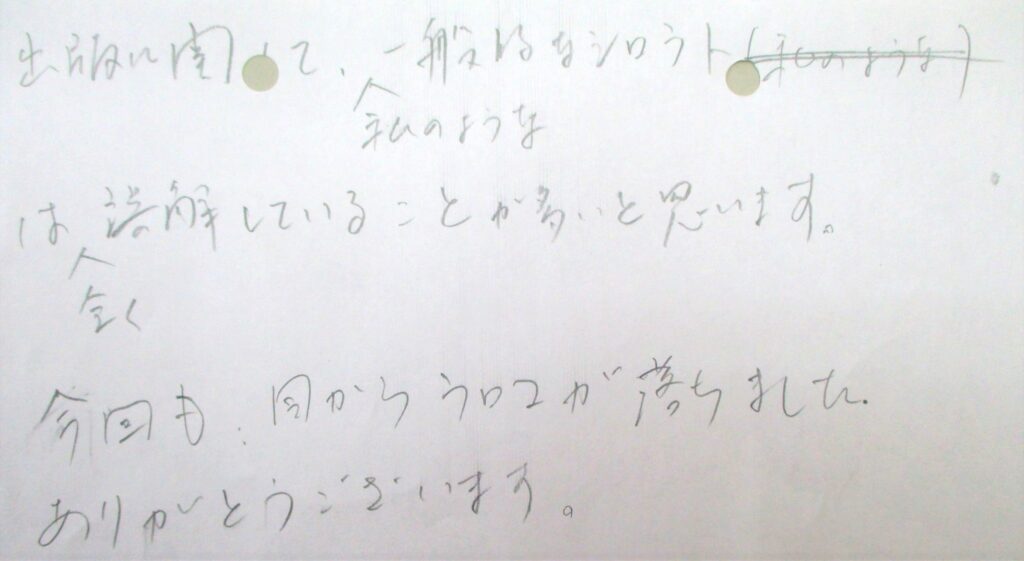 出版に関して、一般的なシロウト(私のような)
私のような
は誤解していることが多いと思います。
全く
今回も、目からウロコが落ちました。
ありがとうございます。